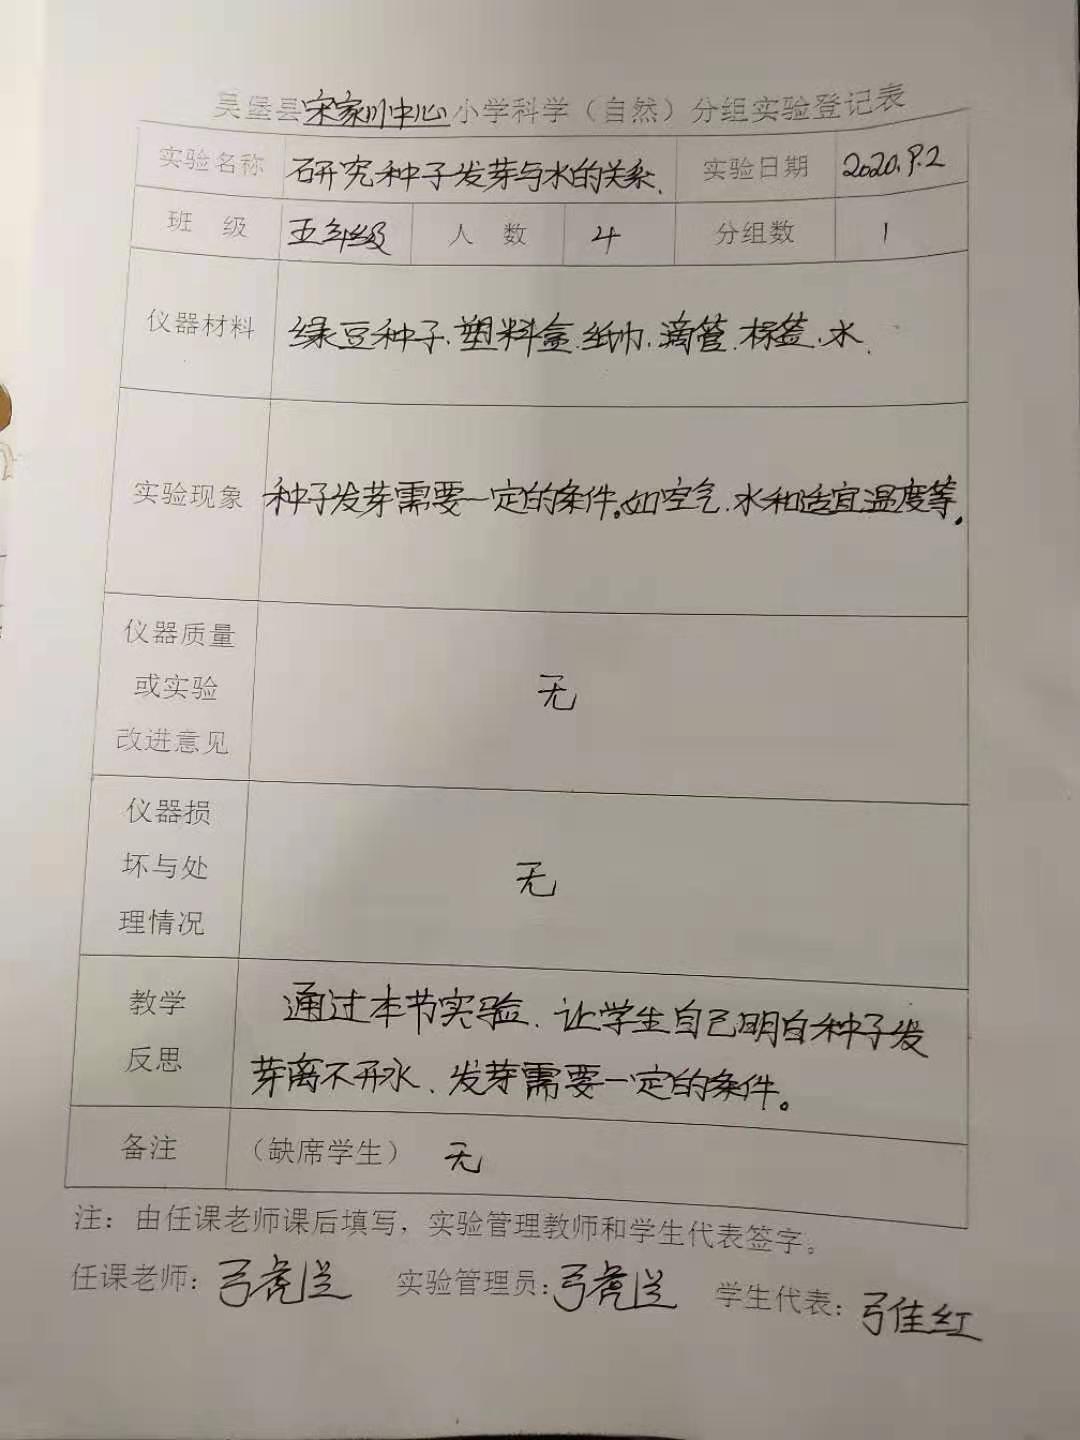 吴堡县宋家川中心小学科学（自然）分组实验登记表
实验名称 研究种子发芽与水的关系. 实验日期 2020.9.2
班 级 五年级 人 数 4 分组数 1
仪器材料 绿豆种子.塑料盒.纸巾.滴管.标签.水.
实验现象 种子发芽需要一定的条件。如空气.水和适宜温度等.
仪器质量
或实验
改进意见
无
仪器损
坏与处
理情况
无
教学
反思
通过本节实验.让学生自己明白种子发
芽离不开水、发芽需要一定的条件。
备注 （缺席学生） 无
注：由任课老师课后填写，实验管理教师和学生代表签字。
任课老师：弓虎 实验管理员：弓虎 学生代表：弓佳红